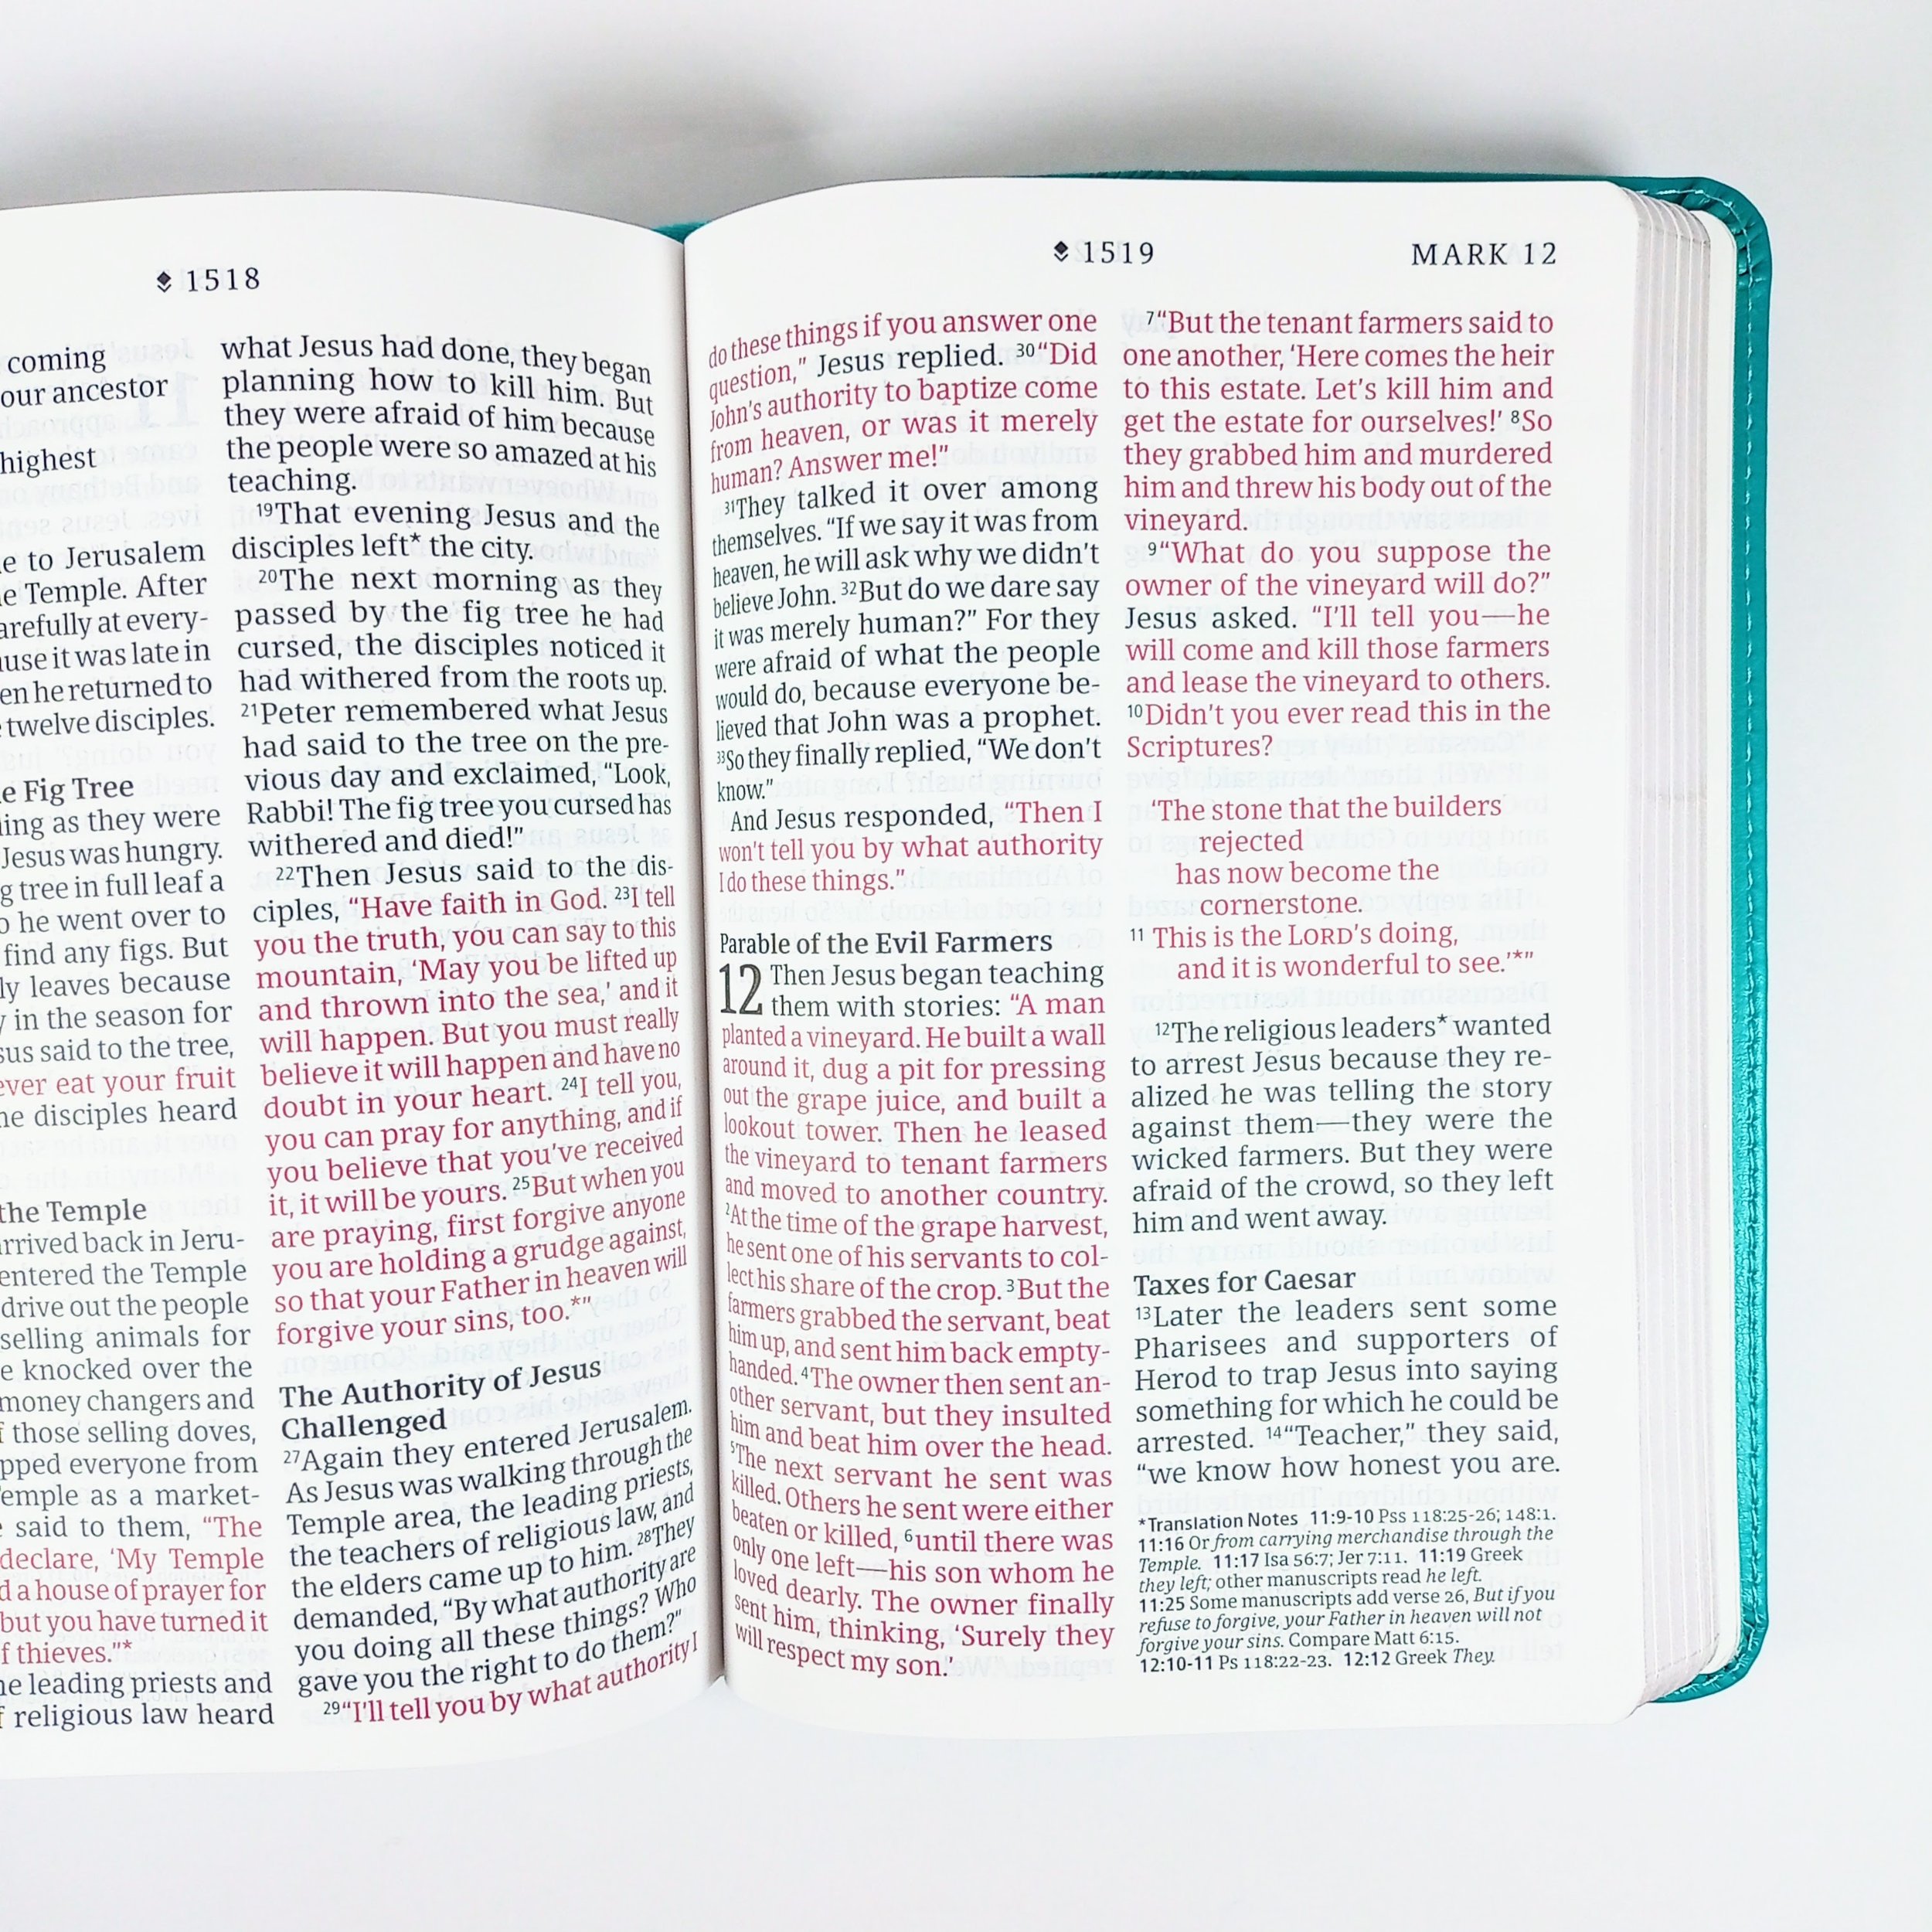 1518
coming
our ancestor
highest
to Jerusalem
Temple. After
at every-
it was late in
he returned to
twelve disciples.
Fig Tree
as they were
Jesus was hungry.
tree in full leaf a
he went over to
find any figs. But
leaves because
in the season for
said to the tree,
eat your fruit
disciples heard
the Temple
back in Jeru-
entered the Temple
drive out the people
selling animals for
knocked over the
money changers and
those selling doves,
everyone from
as a market-
said to them, “The
declare, ‘My Temple
a house of prayer for
but you have turned it
thieves.”*
leading priests and
religious law heard
what Jesus had done, they began
planning how to kill him. But
they were afraid of him because
the people were so amazed at his
teaching.
19That evening Jesus and the
disciples left* the city.
20The next morning as they
passed by the fig tree he had
cursed, the disciples noticed it
had withered from the roots up.
21Peter remembered what Jesus
had said to the tree on the pre-
vious day and exclaimed, “Look,
Rabbi! The fig tree you cursed has
withered and died!”
22Then Jesus said to the dis-
ciples, “Have faith in God. 23I tell
you the truth, you can say to this
mountain, ‘May you be lifted up
and thrown into the sea,’ and it
will happen. But you must really
believe it will happen and have no
doubt in your heart. 24I tell you,
you can pray for anything, and if
you believe that you’ve received
it, it will be yours. 25But when you
are praying, first forgive anyone
you are holding a grudge against,
so that your Father in heaven will
forgive your sins, too.*”
The Authority of Jesus
Challenged
27Again they entered Jerusalem.
As Jesus was walking through the
Temple area, the leading priests,
the teachers of religious law, and
the elders came up to him. 28They
demanded, “By what authority are
you doing all these things? Who
gave you the right to do them?”
29“I’ll tell you by what authority I
1519 MARK 12
do these things if you answer one
question,” Jesus replied. 30“Did
John’s authority to baptize come
from heaven, or was it merely
human? Answer me!”
31They talked it over among
themselves. “If we say it was from
heaven, he will ask why we didn’t
believe John. 32But do we dare say
it was merely human?” For they
were afraid of what the people
would do, because everyone be-
lieved that John was a prophet.
33So they finally replied, “We don’t
know.”
And Jesus responded, “Then I
won’t tell you by what authority
I do these things.”
Parable of the Evil Farmers
12 Then Jesus began teaching
them with stories: “A man
planted a vineyard. He built a wall
around it, dug a pit for pressing
out the grape juice, and built a
lookout tower. Then he leased
the vineyard to tenant farmers
and moved to another country.
2At the time of the grape harvest,
he sent one of his servants to col-
lect his share of the crop. 3But the
farmers grabbed the servant, beat
him up, and sent him back empty-
handed. 4The owner then sent an-
other servant, but they insulted
him and beat him over the head.
5The next servant he sent was
killed. Others he sent were either
beaten or killed, 6until there was
only one left—his son whom he
loved dearly. The owner finally
sent him, thinking, ‘Surely they
will respect my son.’
7“But the tenant farmers said to
one another, ‘Here comes the heir
to this estate. Let’s kill him and
get the estate for ourselves!’ 8So
they grabbed him and murdered
him and threw his body out of the
vineyard.
9“What do you suppose the
owner of the vineyard will do?”
Jesus asked. “I’ll tell you—he
will come and kill those farmers
and lease the vineyard to others.
10Didn’t you ever read this in the
Scriptures?
‘The stone that the builders
rejected
has now become the
cornerstone.
11 This is the LORD’s doing,
and it is wonderful to see.’*”
12The religious leaders* wanted
to arrest Jesus because they re-
alized he was telling the story
against them—they were the
wicked farmers. But they were
afraid of the crowd, so they left
him and went away.
Taxes for Caesar
13Later the leaders sent some
Pharisees and supporters of
Herod to trap Jesus into saying
something for which he could be
arrested. 14“Teacher,” they said,
“we know how honest you are.
*Translation Notes 11:9-10 Pss 118:25-26; 148:1.
11:16 Or from carrying merchandise through the
Temple. 11:17 Isa 56:7; Jer 7:11. 11:19 Greek
they left; other manuscripts read he left.
11:25 Some manuscripts add verse 26, But if you
refuse to forgive, your Father in heaven will not
forgive your sins. Compare Matt 6:15.
12:10-11 Ps 118:22-23. 12:12 Greek They.